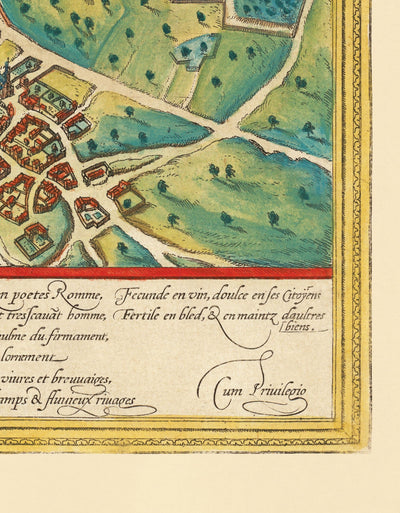 n poetes Romme, Fecunde en vin, doulce en ses Citoÿens
t tresscauāt homme, Fertile en bled, & en maintz daultres
biens.
du firmament,
lornement
vivres et breuvaiges,
amps & fluvieux rivages
Cum Privilegio